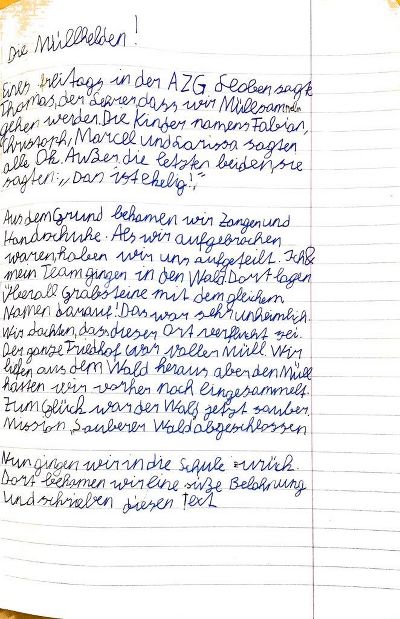 Die Müllhelden!
Eines freitags in der AZG 8 oben sagte
Thomas, der Lehrer, dass wir Müllsammeln
gehen werden. Die Kinfer namens Fabian,
Christoph, Marcel und Larissa sagten
alle Ok. Außer die letzten beiden, sie
sagten: „Dan ist ekelig!"
Aus dem Grund bekamen wir Zangen und
Handschuhe. Als wir aufgebrochen
waren, haben wir uns aufgeteilt. Ich &
mein Team gingen in den Wald. Dort lagen
Überall Grabsteine mit dem gleichem
Namen darauf! Das war sehr unheimlich.
Wir dachten, dass dieser Ort verflucht sei.
Der ganze Friedhof war voller Müll. Wir
liefen aus dem Wald heraus aber den Müll
hatten wir vorher noch eingesammelt.
Zum Glück war der Wald jetzt sauber.
Mission, Sauberer Wald abgeschlossen
Nun gingen wir in die Schule zurück.
Dort bekamen wir eine süße Belohnung
Und schrieben diesen Text